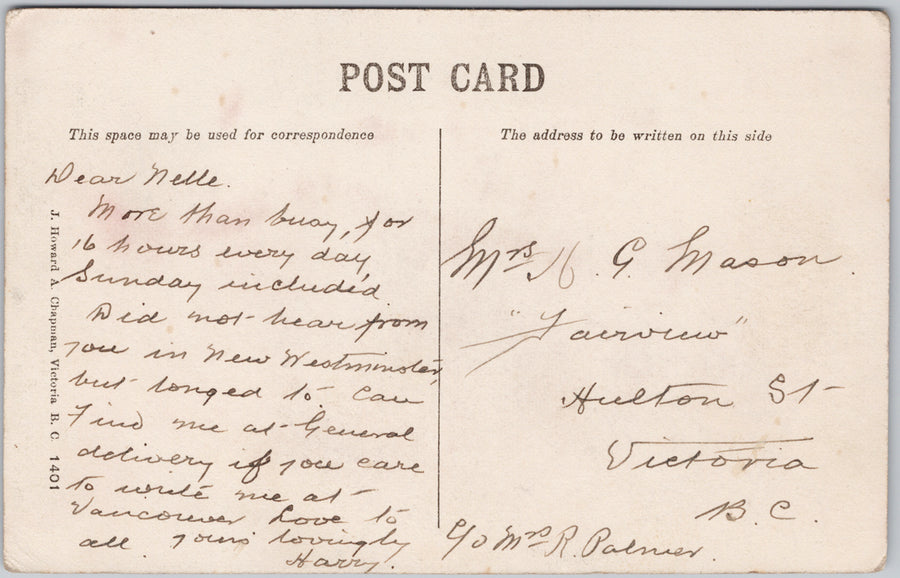 POST CARD
This space may be used for correspondence
The address to be written on this side
J. Howard A. Chapman, Victoria B. C. 1401
Dear Nelle.
More than busy, for
16 hours every day,
Sunday included.
Did not hear from
you in New Westminster,
but longed to. Can
find me at General
delivery if you care
to write me at
Vancouver Love to
all. yours lovingly
Harry.
Mrs H. G. Mason.
"Fairview"
Hulton St
Victoria
B.C.
C/o Mrs R. Palmer.